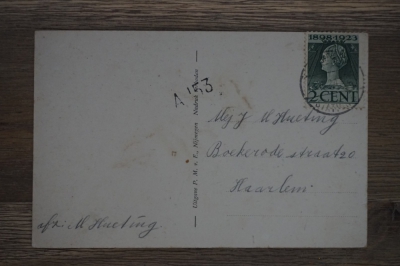 1898-1923
2 CENT
A 153
Mej J M Hueting
Boekerodestraat 20
Haarlem
afz: M Hueting
Uitgave F. M. v. E., Nijmegen Nadruk verboden